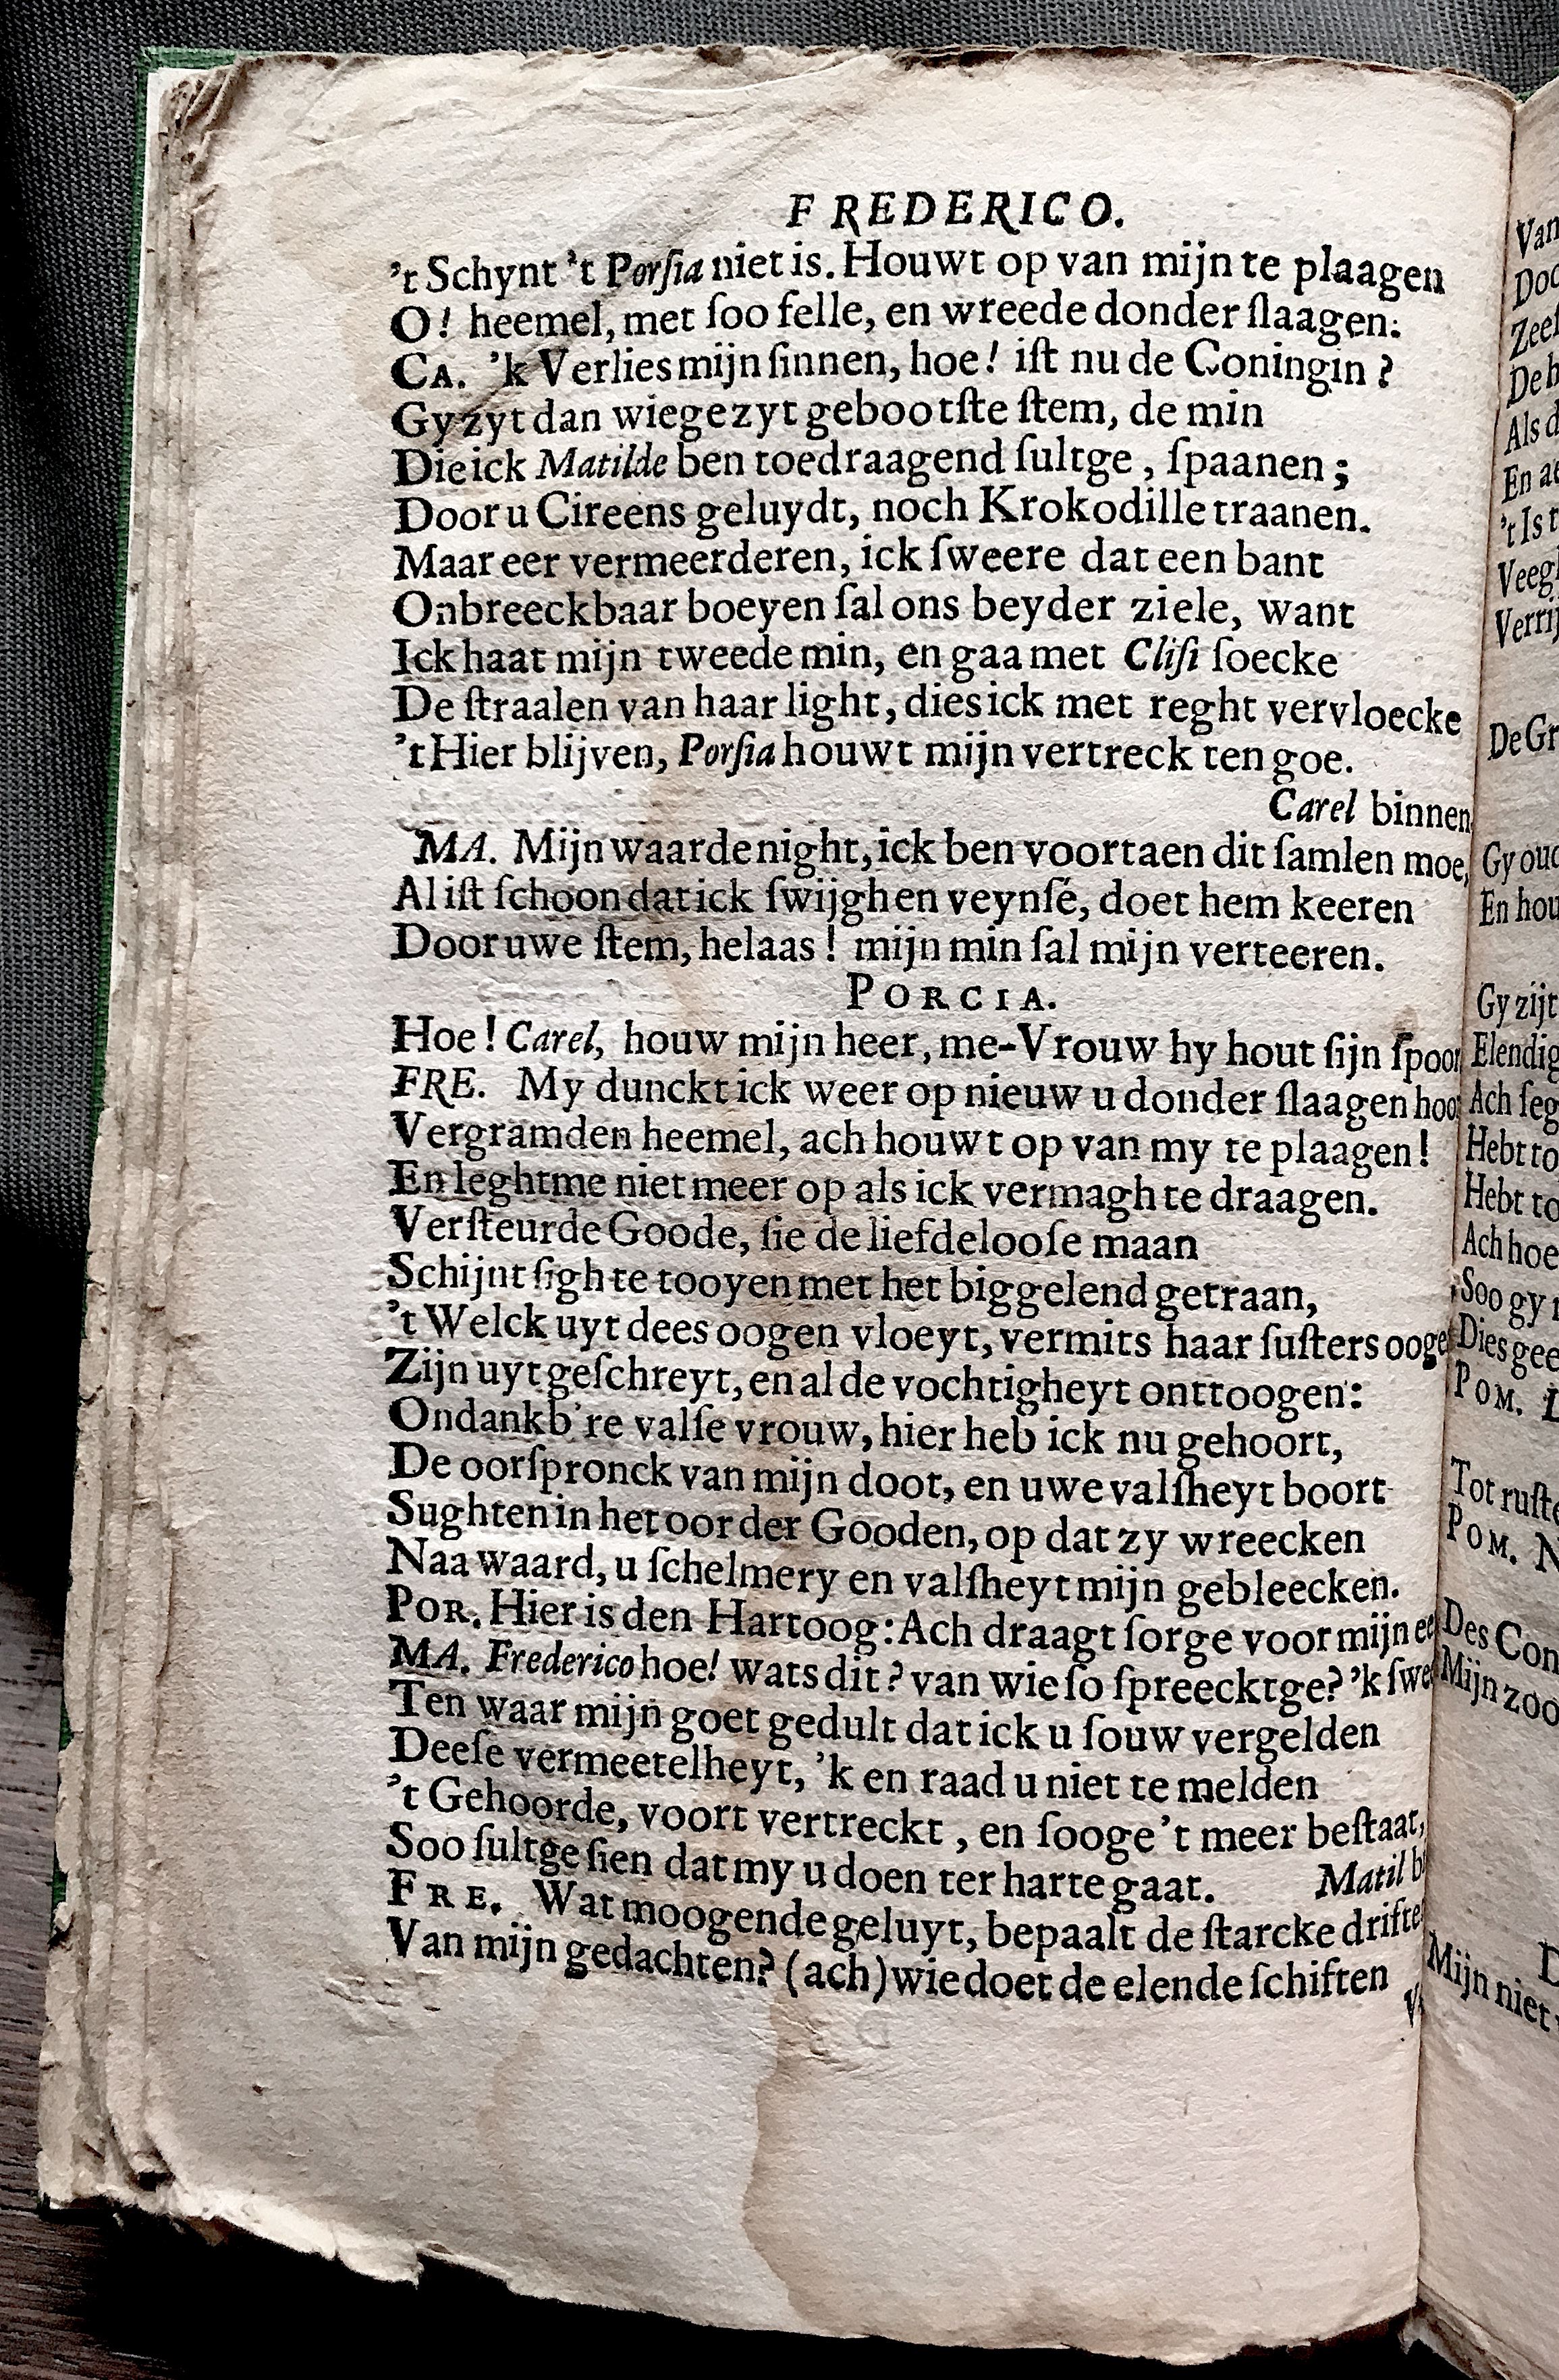 FREDERICO.
't Schynt 't Porſia niet is. Houwt op van mijn te plaagen
O! heemel, met ſoo felle, en wreede donder ſlaagen.
CA. 'k Verlies mijn ſinnen, hoe! iſt nu de Coningin?
Gy zyt dan wie ge zyt gebootſte ſtem, de min
Die ick Matilde ben toedraagend ſultge, ſpaanen;
Door u Cireens geluydt, noch Krokodille traanen.
Maar eer vermeerderen, ick ſweere dat een bant
Onbreeckbaar boeyen ſal ons beyder ziele, want
Ick haat mijn tweede min, en gaa met Cliſi ſoecke
De ſtraalen van haar light, dies ick met reght vervloecke
't Hier blijven, Porſia houwt mijn vertreck ten goe.
Carel binnen
MA. Mijn waarde night, ick ben voortaen dit ſamlen moe,
Al iſt ſchoon dat ick ſwijghen veynſé, doet hem keeren
Door uwe ſtem, helaas! mijn min ſal mijn verteeren.
PORCIA.
Hoe! Carel, houw mijn heer, me-Vrouw hy hout ſijn ſpoor
FRE. My dunckt ick weer op nieuw u donder ſlaagen hoo
Vergramden heemel, ach houwt op van my te plaagen!
En leght me niet meer op als ick vermagh te draagen.
Verſteurde Goode, ſie de liefdelooſe maan
Schijnt ſigh te tooyen met het biggelend getraan,
't Welck uyt dees oogen vloeyt, vermits haar ſuſters ooge
Zijn uytgeſchreyt, en al de vochtigheyt onttoogen:
Ondankb're valſe vrouw, hier heb ick nu gehoort,
De oorſpronck van mijn doot, en uwe valſheyt boort
Sughten in het oor der Gooden, op dat zy wreecken
Naa waard, u ſchelmery en valſheyt mijn gebleecken.
POR. Hier is den Hartoog: Ach draagt ſorge voor mijn ee
MA. Frederico hoe! wats dit? van wie ſo ſpreecktge? 'k ſwe
Ten waar mijn goet gedult dat ick u ſouw vergelden
Deeſe vermeetelheyt, 'k en raad u niet te melden
't Gehoorde, voort vertreckt, en ſooge 't meer beſtaat,
Soo ſultge ſien dat my u doen ter harte gaat. Matil b
FRE. Wat moogende geluyt, bepaalt de ſtarcke drifte
Van mijn gedachten? (ach) wie doet de elende ſchiften
V
Van
Doo
Zeeſ
De h
Als d
En ae
't Is t
Veegl
Verrij
De Gr
Gy oud
En hou
Gy zijt
Elendig
Ach ſeg
Hebt to
Hebt to
Ach hoe
Soo gy
Dies gee
POM.
Tot ruſte
POM. N
Des Con
Mijn zoo
D
Mijn niet